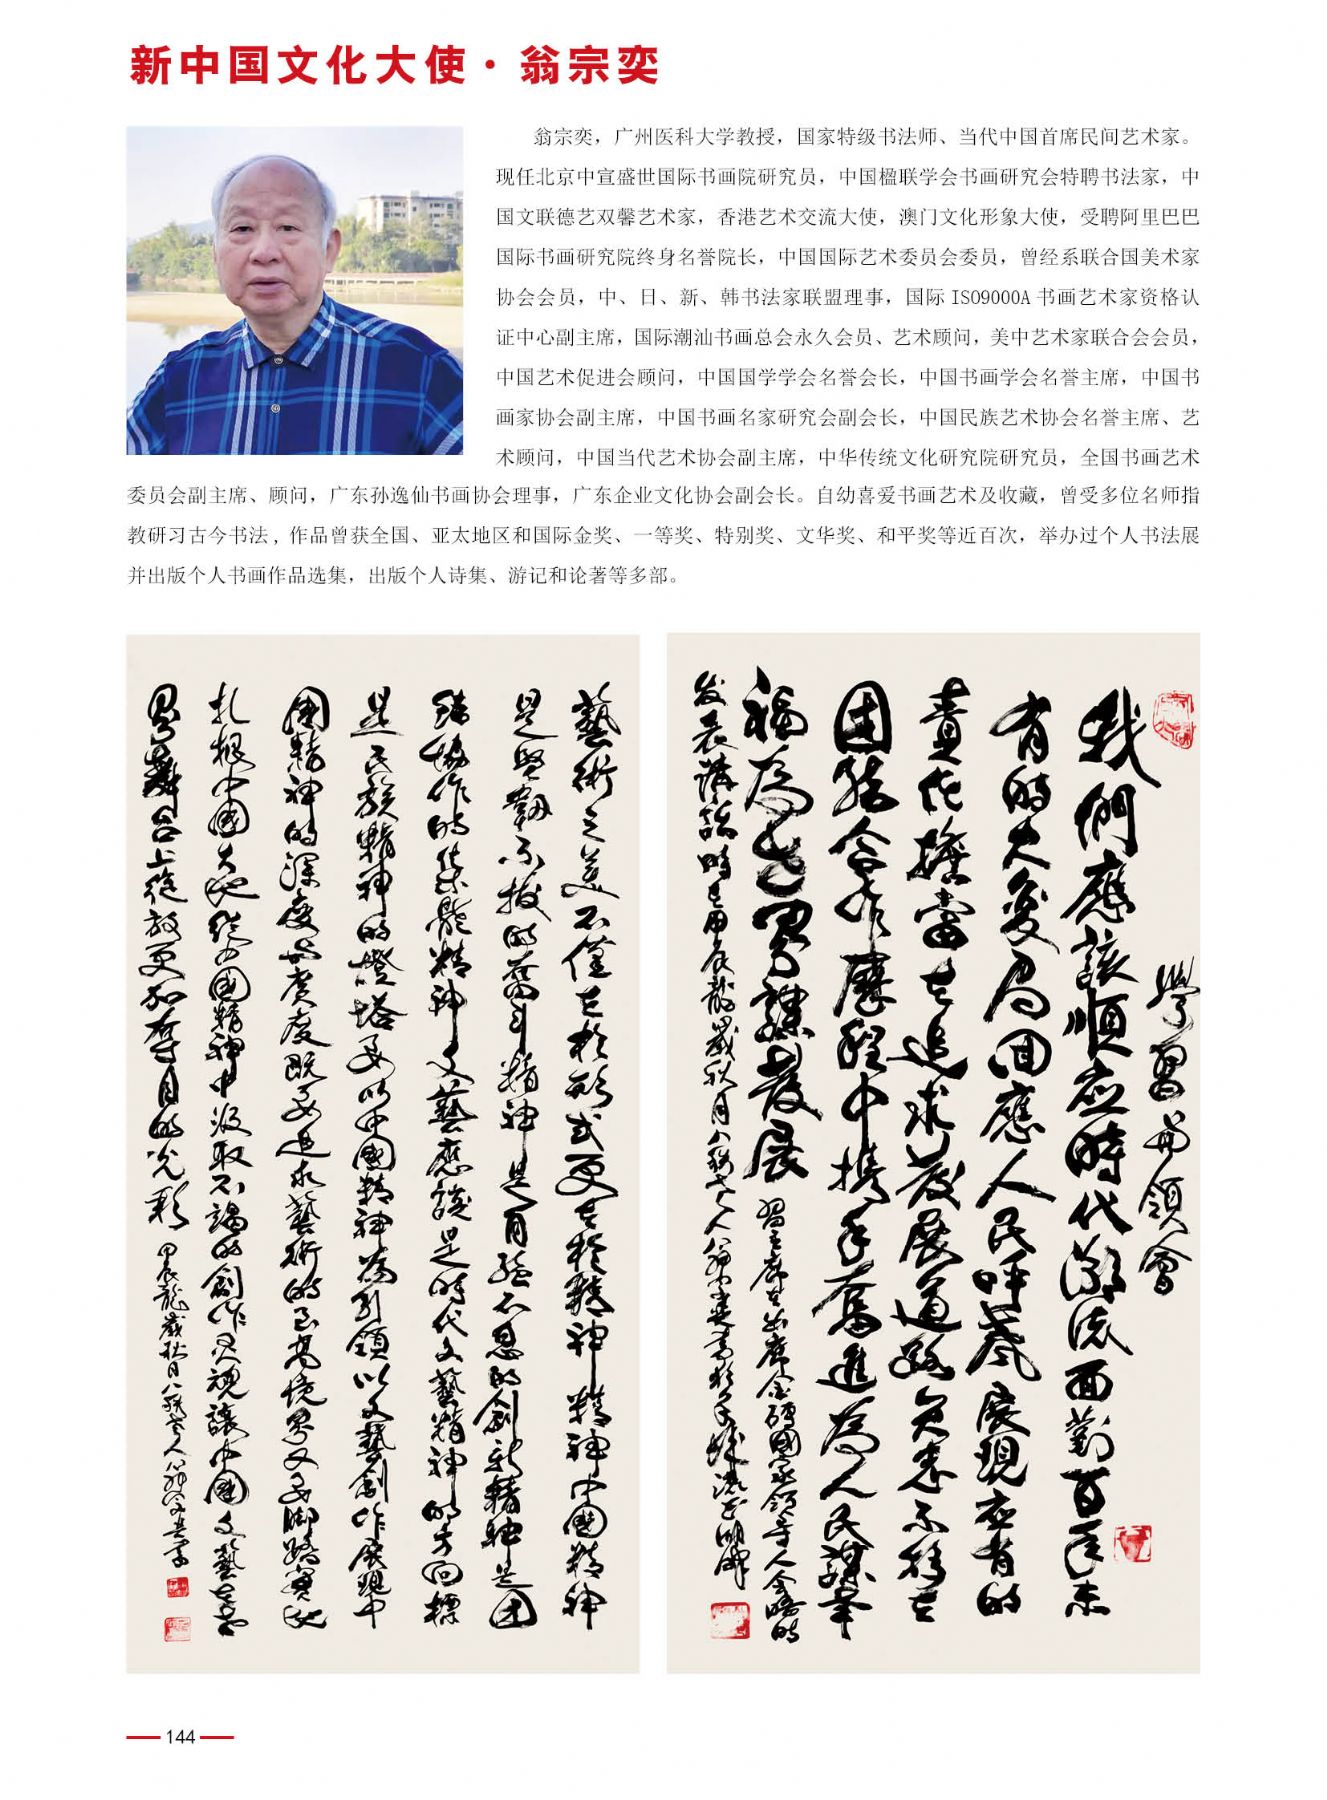 新中国文化大使·翁宗奕
翁宗奕，广州医科大学教授，国家特级书法师、当代中国首席民间艺术家。
现任北京中宣盛世国际书画院研究员，中国楹联学会书画研究会特聘书法家，中
国文联德艺双馨艺术家，香港艺术交流大使，澳门文化形象大使，受聘阿里巴巴
国际书画研究院终身名誉院长，中国国际艺术委员会委员，曾经系联合国美术家
协会会员，中、日、新、韩书法家联盟理事，国际 ISO9000A 书画艺术家资格认
证中心副主席，国际潮汕书画总会永久会员、艺术顾问，美中艺术家联合会会员，
中国艺术促进会顾问，中国国学学会名誉会长，中国书画学会名誉主席，中国书
画家协会副主席，中国书画名家研究会副会长，中国民族艺术协会名誉主席、艺
术顾问，中国当代艺术协会副主席，中华传统文化研究院研究员，全国书画艺术
委员会副主席、顾问，广东孙逸仙书画协会理事，广东企业文化协会副会长。自幼喜爱书画艺术及收藏，曾受多位名师指
教研习古今书法，作品曾获全国、亚太地区和国际金奖、一等奖、特别奖、文华奖、和平奖等近百次，举办过个人书法展
并出版个人书画作品选集，出版个人诗集、游记和论著等多部。
學習與領會
我們應該順应時代潮流面對百年未
有的大变局回應人民呼声展现应有的
責任擔當在追求發展道路
团结合作 程中携手奮進為人民謀幸
福為世界謀發展
習主席在出席金磚國家領导人会晤时
发表講話時在甲辰龍歲秋月
藝術之美不僅在於形式更在於精神精神中國精神
是堅韌不拔的奮斗精神是自强不息的創新精神是团
结協作的集體精神文藝應該是時代文藝精神的方向標
是民族精神的燈塔要以中國精神為引領以文藝創作展現中
國精神的深度与廣度既要追求藝術的至高境界又要脚踏實地
扎根中國大地從中國精神中汲取不竭的創作灵魂讓中國文藝在世
界舞台上绽放更加奪目的光彩
144